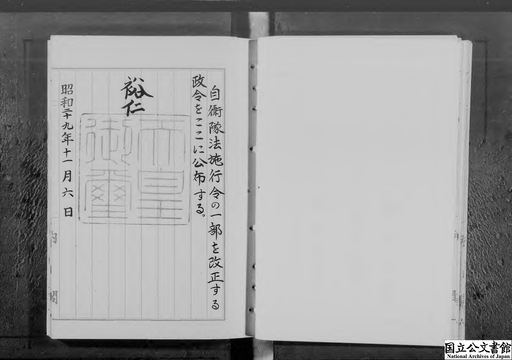 自衛隊法施行令の一部を改正する
政令をここに公布する。
裕仁
天皇
御璽
昭和二十九年十一月六日
内閣
国立公文書館
National Archives of Japan